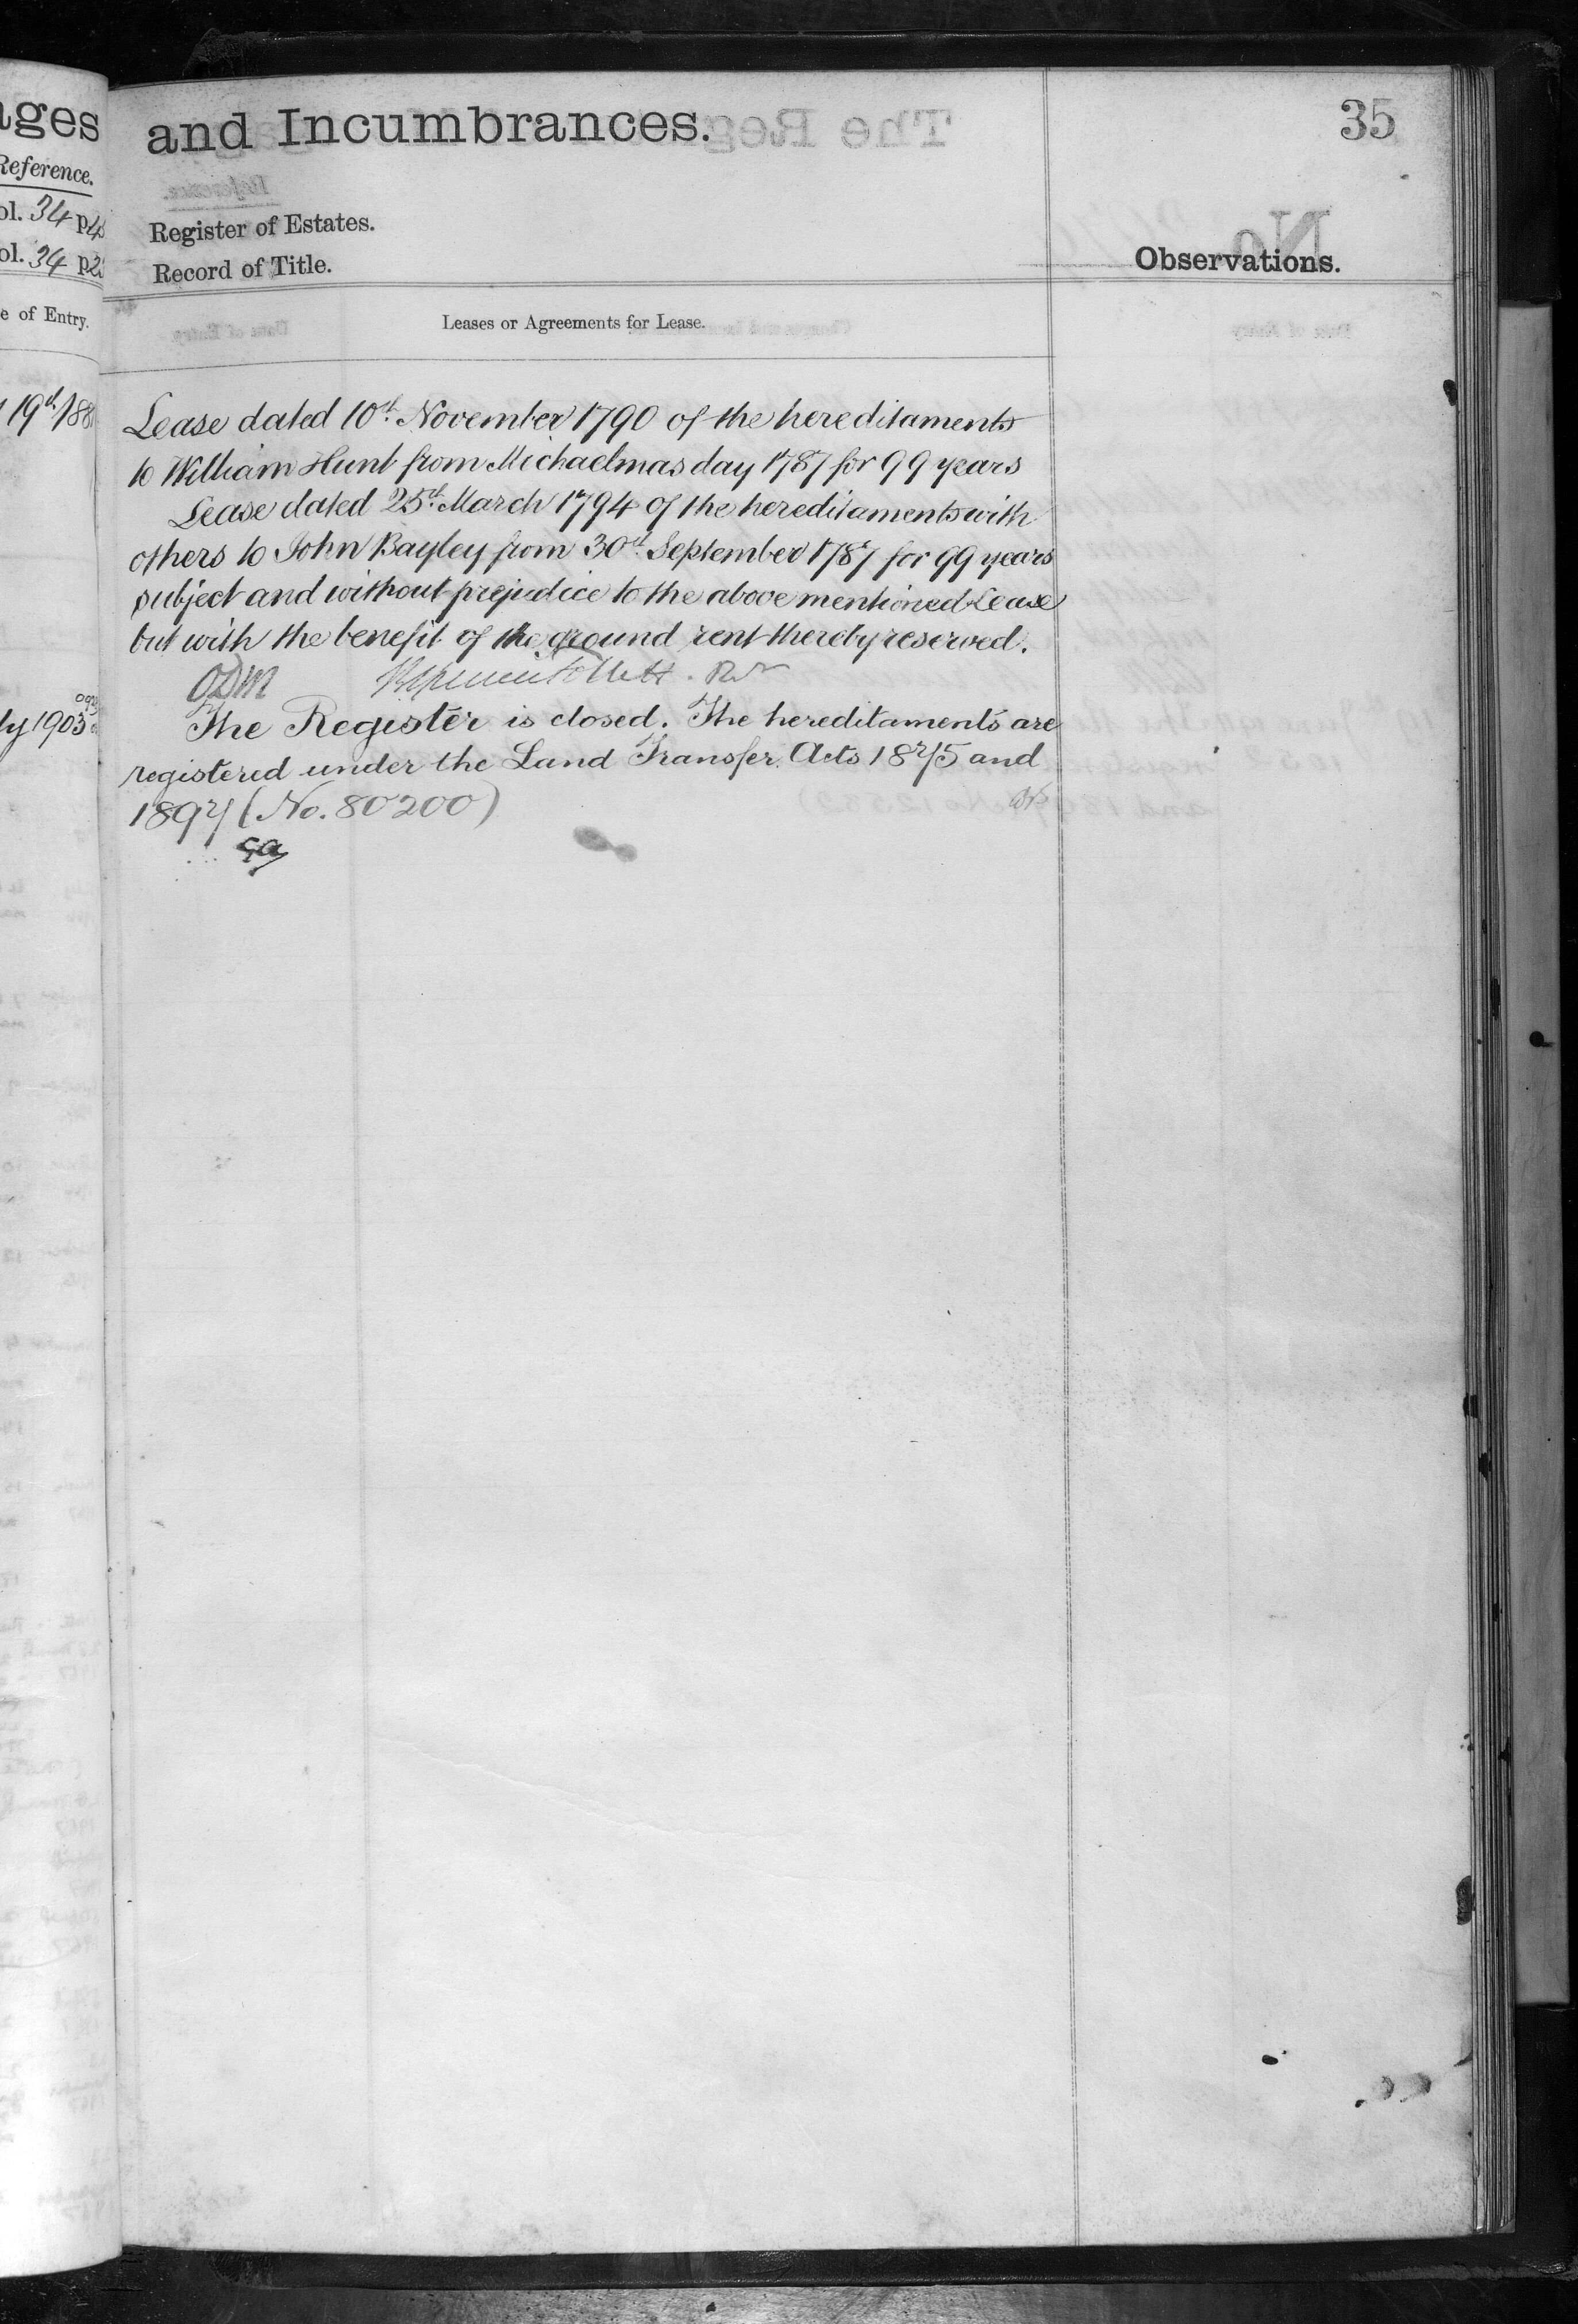 ages
Reference.
ol. 34 p4
ol. 34 p2
e of Entry.
19th 188
ly 1903
and Incumbrances.
35
Register of Estates.
Record of Title.
Observations.
Leases or Agreements for Lease.
Lease dated 10th November 1790 of the hereditaments
to William Hunt from Michaelmas day 1787 for 99 years
Lease dated 25th March 1794 of the hereditaments with
others to John Bayley from 30th September 1787 for 99 years
subject and without prejudice to the above mentioned Lease
but with the benefit of the ground rent thereby reserved.
The Register is closed. The hereditaments are
registered under the Land Transfer Acts 1875 and
1897 (No. 80200)